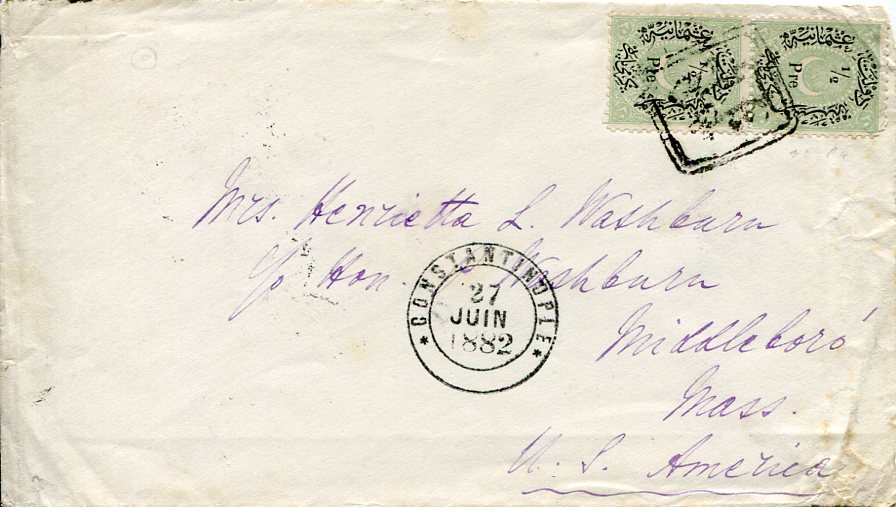 عثمانیه
1/2
Pre
عثمانیه
1/2
Pre
Mrs. Henrietta L. Washburn
c/o Hon. Washburn
Middleboro'
Mass.
U. S. America
* CONSTANTINOPLE *
27
JUIN
1882